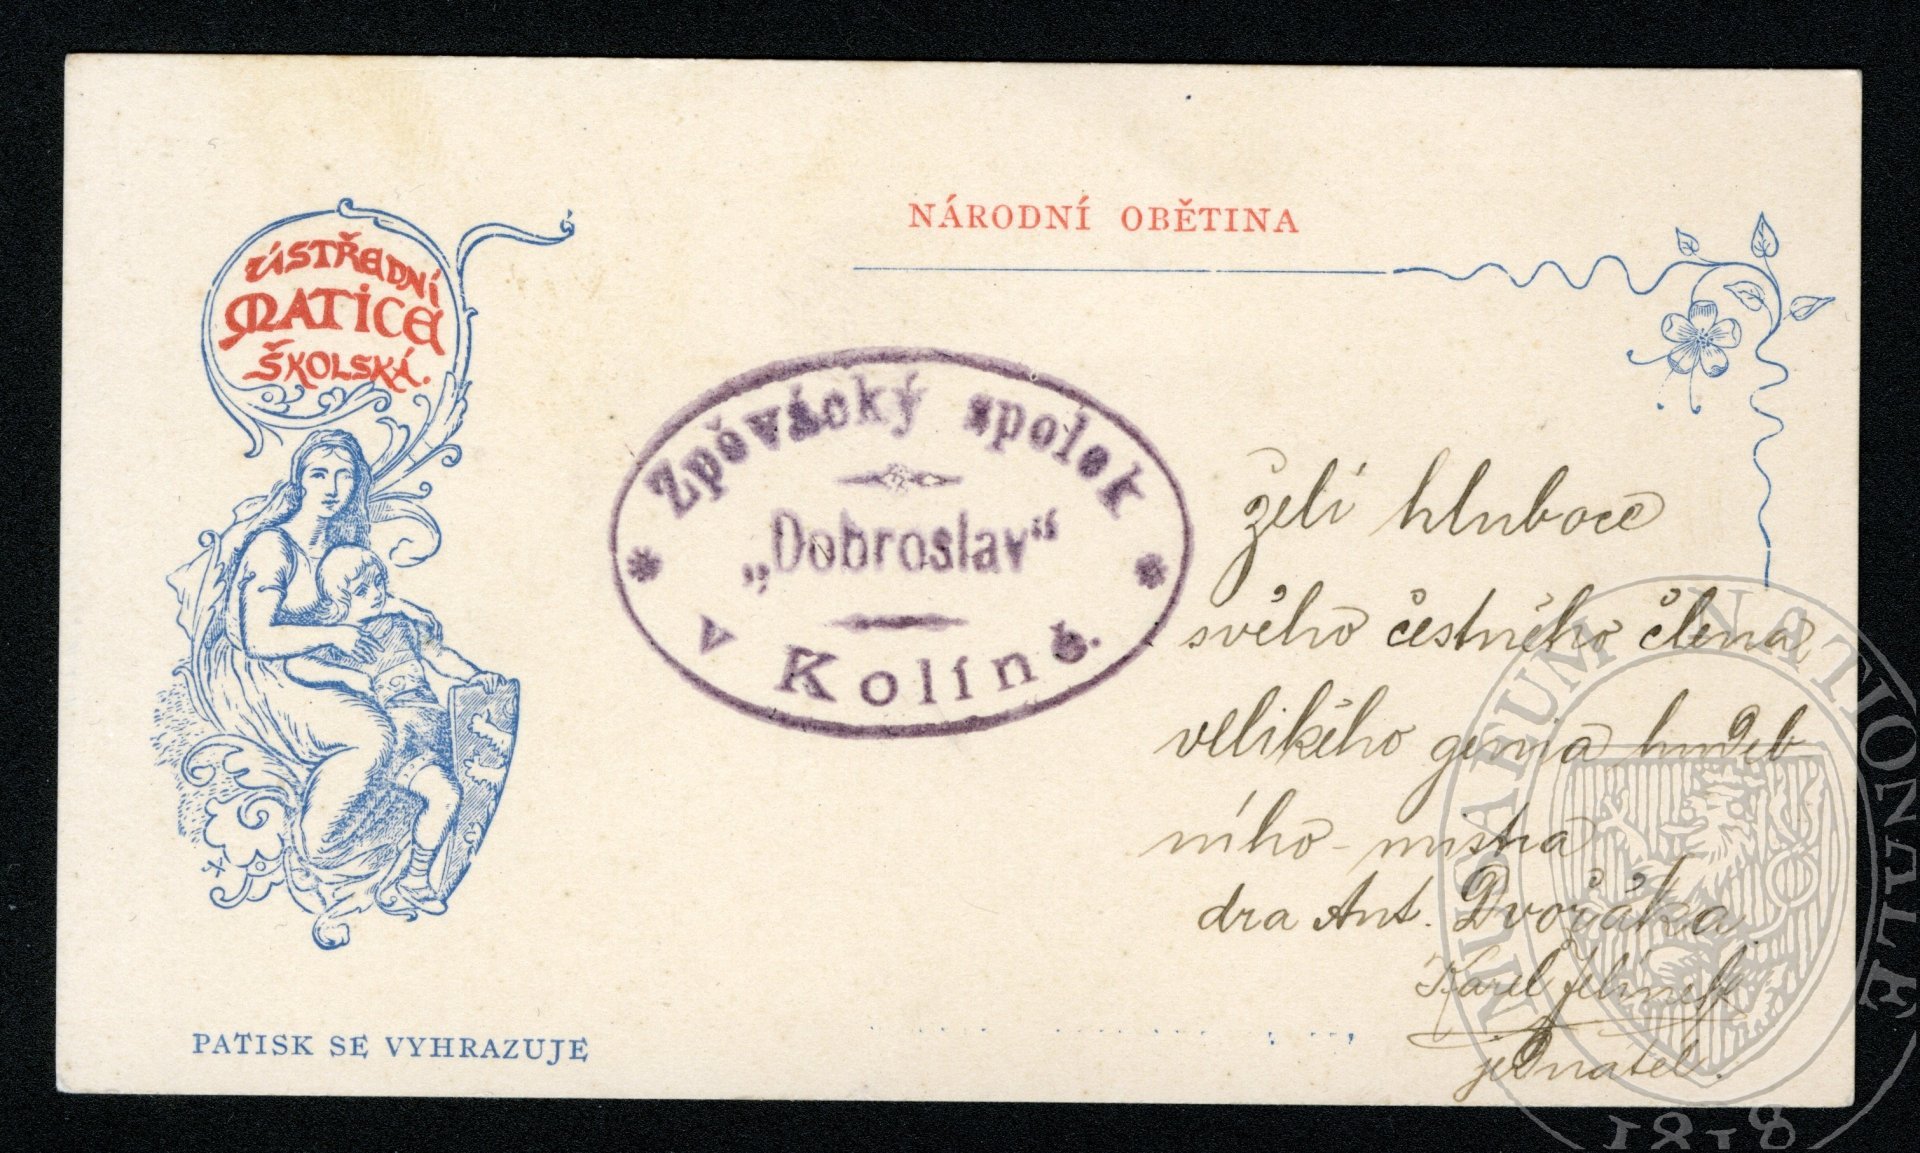 ÚSTŘEDNÍ
MATICE
ŠKOLSKÁ.
NÁRODNÍ OBĚTINA
Zpěvácký spolek
„Dobroslav“
v Kolíně.
želí hluboce
svého čestného člena,
velikého genia hudeb
ního mistra
dra Ant. Dvořáka
Karel Jelínek
jednatel.
PATISK SE VYHRAZUJE
MUSAEUM NATIONALE
1818